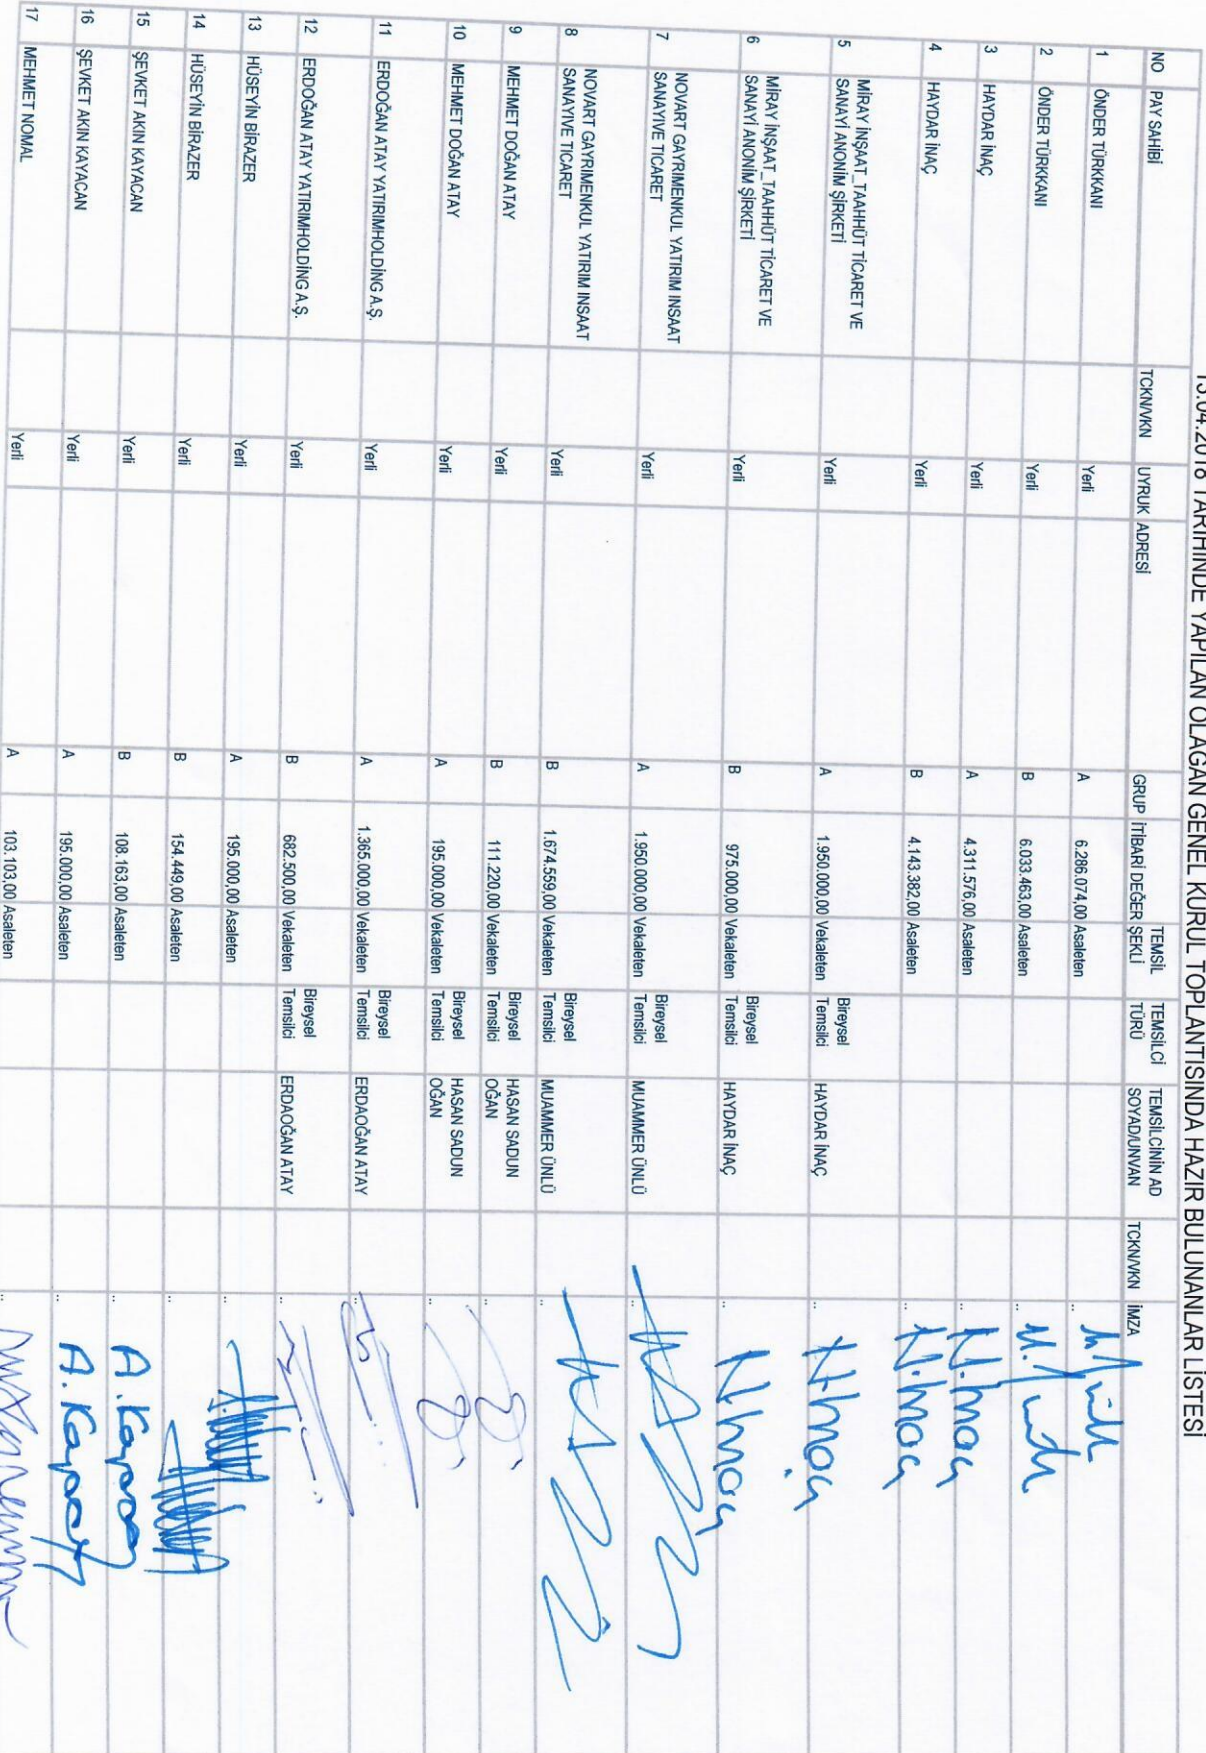 TARİHİNDE YAPILAN OLAĞAN GENEL KURUL TOPLANTISINDA HAZIR BULUNANLAR LİSTESİ
NO PAY SAHİBİ TCKN/VKN UYRUK ADRESİ GRUP İTİBARİ DEĞER TEMSİL ŞEKLİ TEMSİLCİ TÜRÜ TEMSİLCİNİN AD SOYAD/UNVAN TCKN/VKN İMZA
1 ÖNDER TÜRKKANI Yerli A 6.286.074,00 Asaleten ..
2 ÖNDER TÜRKKANI Yerli B 6.033.463,00 Asaleten ..
3 HAYDAR İNAÇ Yerli A 4.311.576,00 Asaleten .. H.İnaç
4 HAYDAR İNAÇ Yerli B 4.143.382,00 Asaleten .. H.İnaç
5 MİRAY İNŞAAT_TAAHHÜT TİCARET VE
SANAYİ ANONİM ŞİRKETİ Yerli A 1.950.000,00 Vekaleten Bireysel Temsilci HAYDAR İNAÇ .. H.İnaç
6 MİRAY İNŞAAT_TAAHHÜT TİCARET VE
SANAYİ ANONİM ŞİRKETİ Yerli B 975.000,00 Vekaleten Bireysel Temsilci HAYDAR İNAÇ .. H.İnaç
7 NOVART GAYRIMENKUL YATIRIM INSAAT
SANAYIVE TICARET Yerli A 1.950.000,00 Vekaleten Bireysel Temsilci MUAMMER ÜNLÜ ..
8 NOVART GAYRIMENKUL YATIRIM INSAAT
SANAYIVE TICARET Yerli B 1.674.559,00 Vekaleten Bireysel Temsilci MUAMMER ÜNLÜ ..
9 MEHMET DOĞAN ATAY Yerli B 111.220,00 Vekaleten Bireysel Temsilci HASAN SADUN OĞAN ..
10 MEHMET DOĞAN ATAY Yerli A 195.000,00 Vekaleten Bireysel Temsilci HASAN SADUN OĞAN ..
11 ERDOĞAN ATAY YATIRIMHOLDİNG A.Ş. Yerli A 1.365.000,00 Vekaleten Bireysel Temsilci ERDAOĞAN ATAY ..
12 ERDOĞAN ATAY YATIRIMHOLDİNG A.Ş. Yerli B 682.500,00 Vekaleten Bireysel Temsilci ERDAOĞAN ATAY ..
13 HÜSEYİN BİRAZER Yerli A 195.000,00 Asaleten ..
14 HÜSEYİN BİRAZER Yerli B 154.449,00 Asaleten ..
15 ŞEVKET AKIN KAYACAN Yerli B 108.163,00 Asaleten ..
16 ŞEVKET AKIN KAYACAN Yerli A 195.000,00 Asaleten ..
17 MEHMET NOMAL Yerli A 103.103,00 Asaleten ..